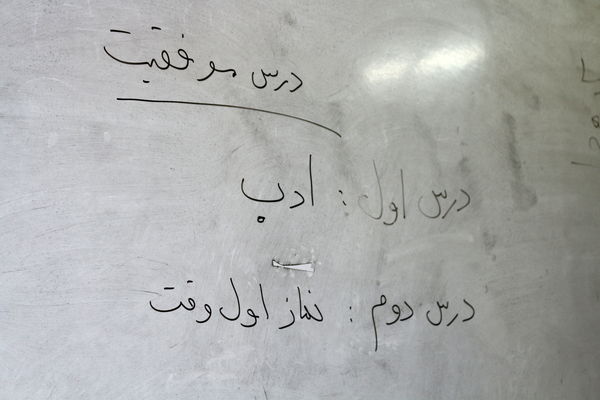 درس موفقیت
درس اول : ادب
درس دوم : نماز اول وقت